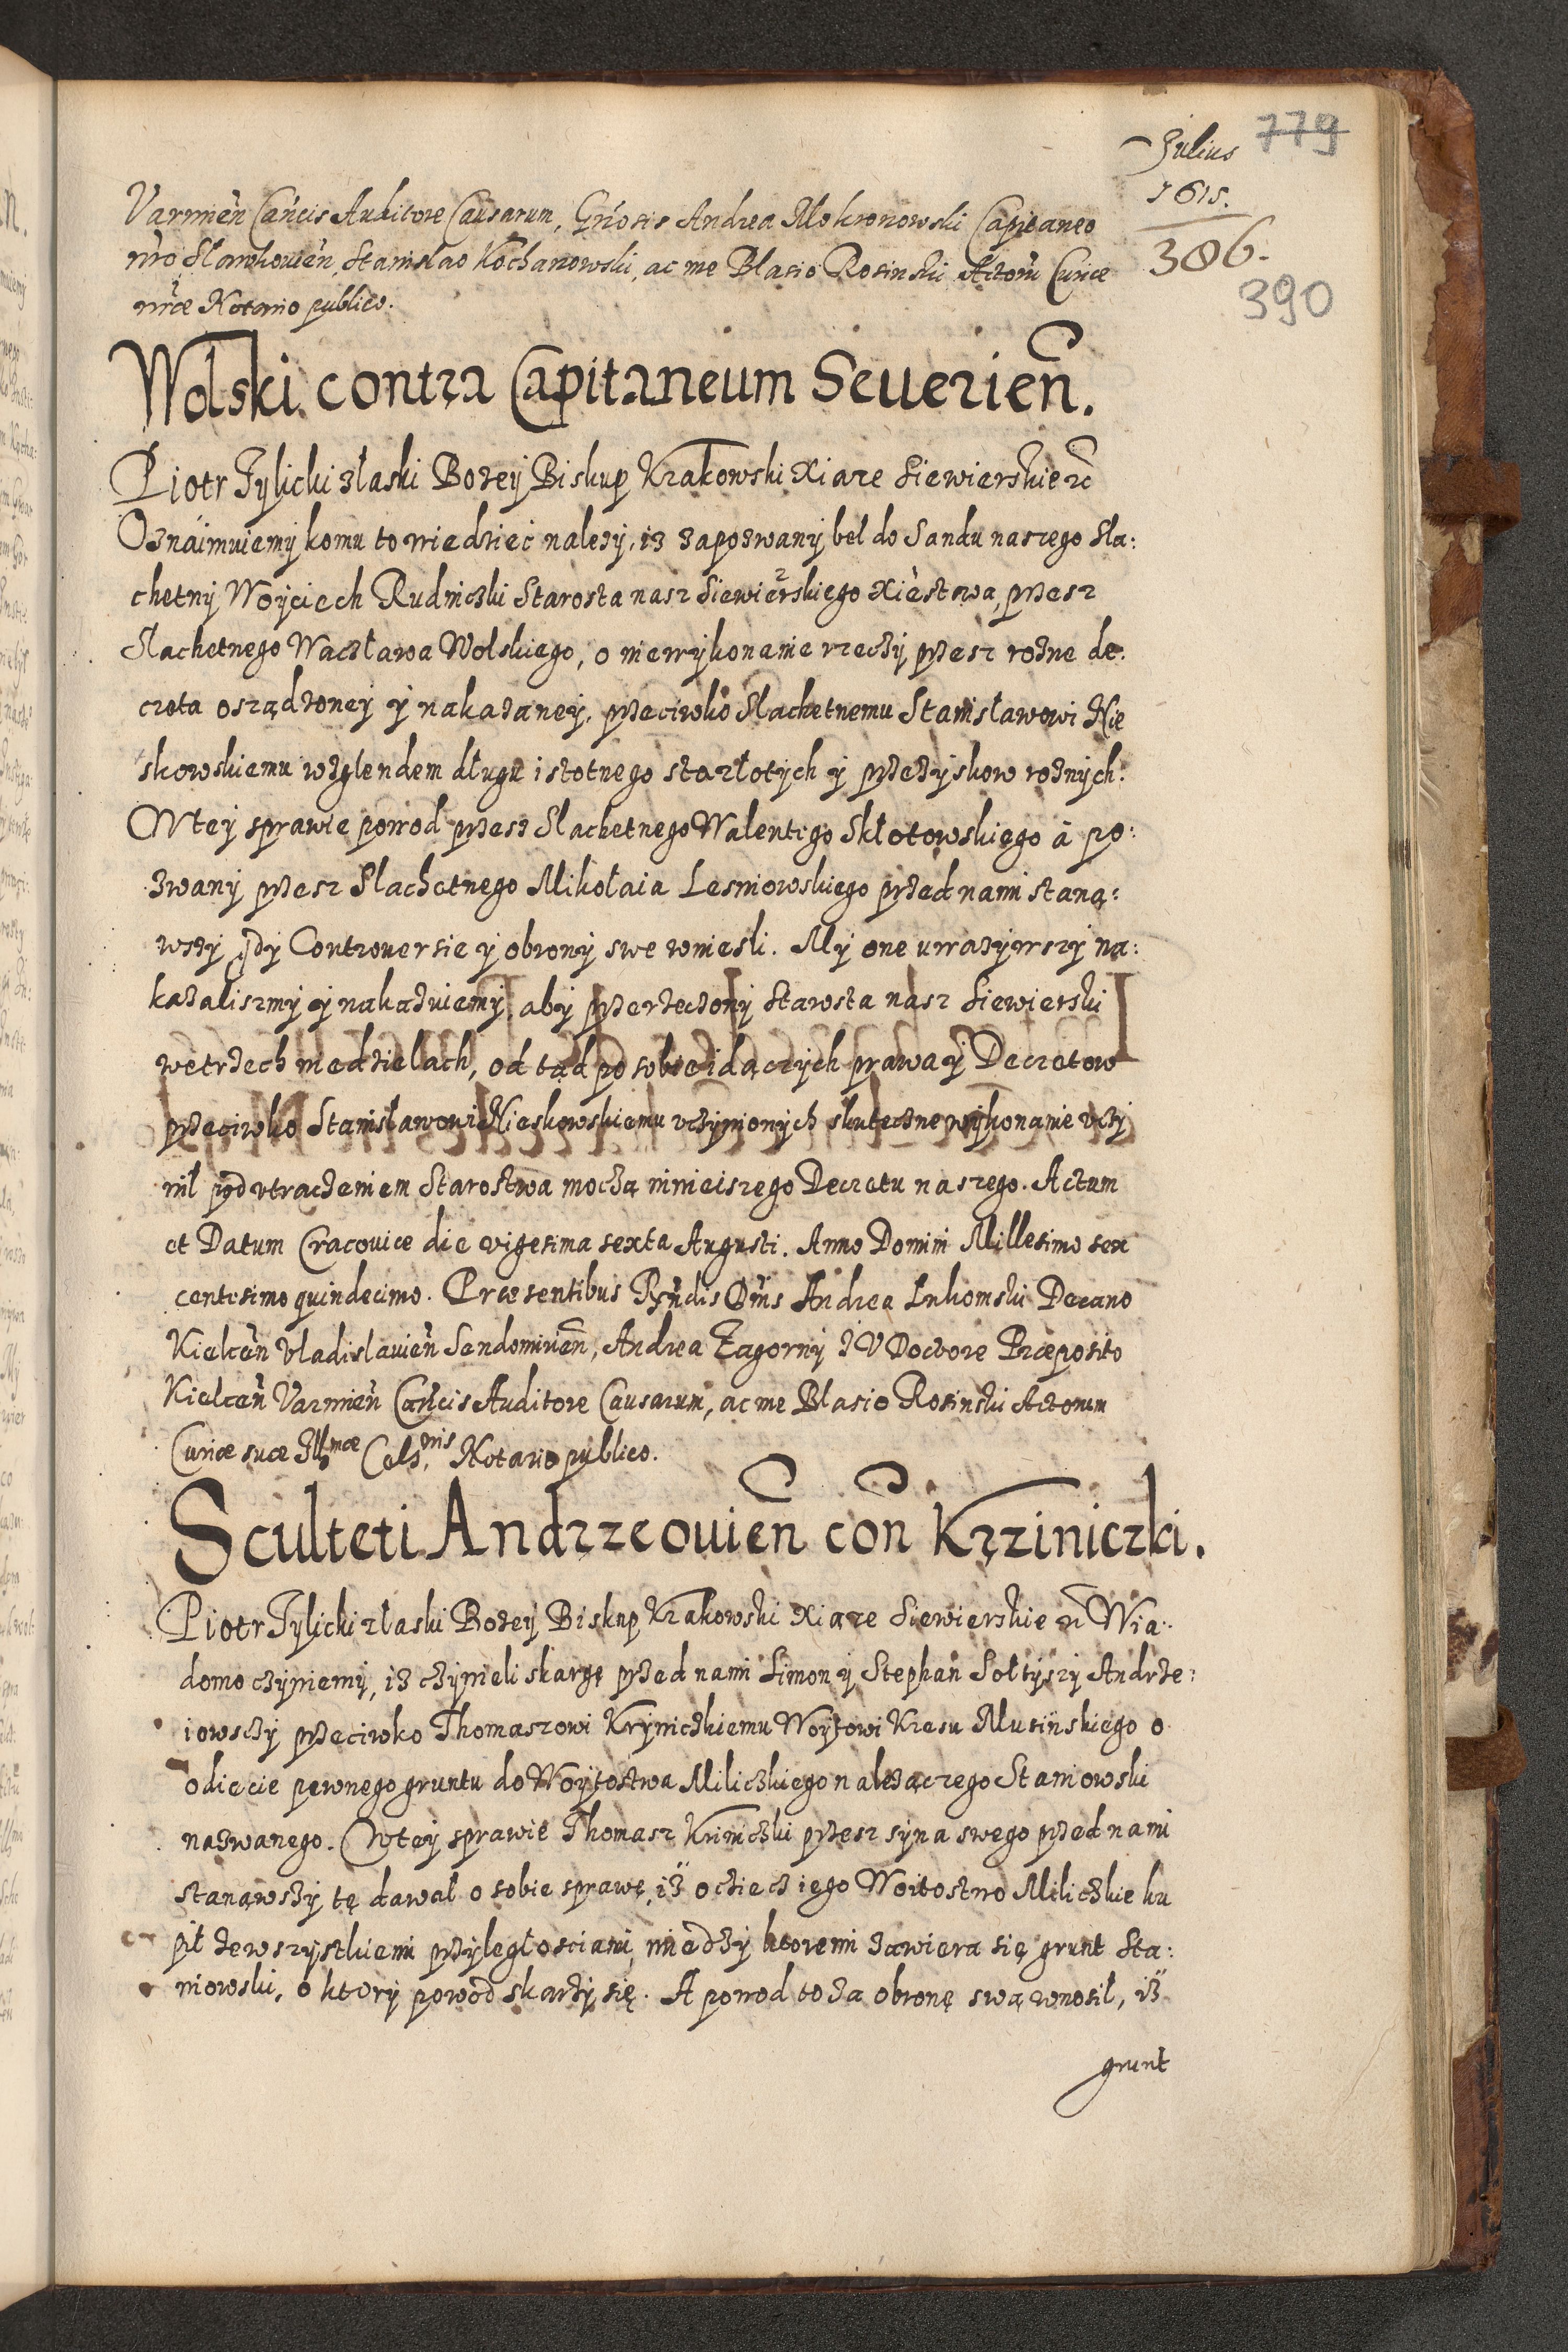 Julius 779
1615.
386.
390
Varmień Cańcis Auditore Causarum, Gńosis Andrea Mokronowski Capitaneo
nr̃o Slawkouień, Stanislao Kochanowski, ac me Blasio Rosinski Actorũ Curiæ
nr̃æ Notario publico.
Wolski contra Capitaneum Seuerień.
Piotr Tylicki złaski Bożey Biskup Krakowski Xiąze Siewierskie ec̃
Oznáimuiemy komu to wiedzieć nalezy, iz zapozwany bel do Sandu naszego Sla:
chetny Woyciech Rudniczki Starosta nasz Siewierskiego Xięstwa, przesz
Slachetnego Waczława Wolskiego, o niewykonanie rzeczy przesz rożne de:
creta osządzoney y nakazaney, przeciwko Slachetnemu Stanisławowi Nie
skowskiemu wzglendem długu istotnego stazłotych y przezyskow roznych.
Wtey sprawie powod przesz Slachetnego Walentego Skłotowskiego á po:
zwany przesz Slachetnego Mikołaia Lesniowskiego przed nami staną:
wszy Controuersie y obrony swe wniesli. My one uwazywszy na:
kazaliszmy y nakazuiemy, aby przerzeczony Starosta nasz Siewierski
wetrzech niedzielach, od tąd po sobie idączych prawa y Decretow
przeciwko Stanisławowi Nieskowskiemu vczynionych skuteczne wykonanie vczy
nil pod vtraczeniem Starostwa moczą ninieiszego Decretu naszego. Actum
et Datum Cracouiæ die vigesima sexta Augusti. Anno Domini Millesimo sex
centesimo quindecimo. Præsentibus Rṽndis Dńis Andrea Lukomski Decano
Kielceń Vladislauień Sendomirień, Andrea Zagorny I V Doctore Præposito
Kielceń Varmień Cańcis Auditore Causarum, ac me Blasio Rosinski Actorum
Curiæ suæ Illmæ Cels,nis Notario publico.
Sculteti Andrzeouień con̄ Krziniczki.
Piotr Tylicki złaski Bożey Biskup Krakowski Xiąze Siewierskie ec̃ Wia:
domo czyniemy, iz czynieli skargę przed nami Simon y Stephan Soltyszy Andrze:
iowsczy przeciwko Thomaszowi Kryniczkiemu Woytowi Kresu Musinskiego o
odięcie pewnego gruntu do Woytostwa Miliczkiego nalezączego Staniowski
nazwanego. Wtey sprawie Thomasz Kriniczki przesz syna swego przed nami
stanąwszy tę dawał o sobie sprawę, iz ocziecz iego Woitostwo Miliczkie ku
pił zewszystkiemi przyległosciami, miedzy ktoremi zawiera się grunt Sta:
niowski, o ktory powod skarzy się. A powod to za obronę swą wnosił, iz
grunt